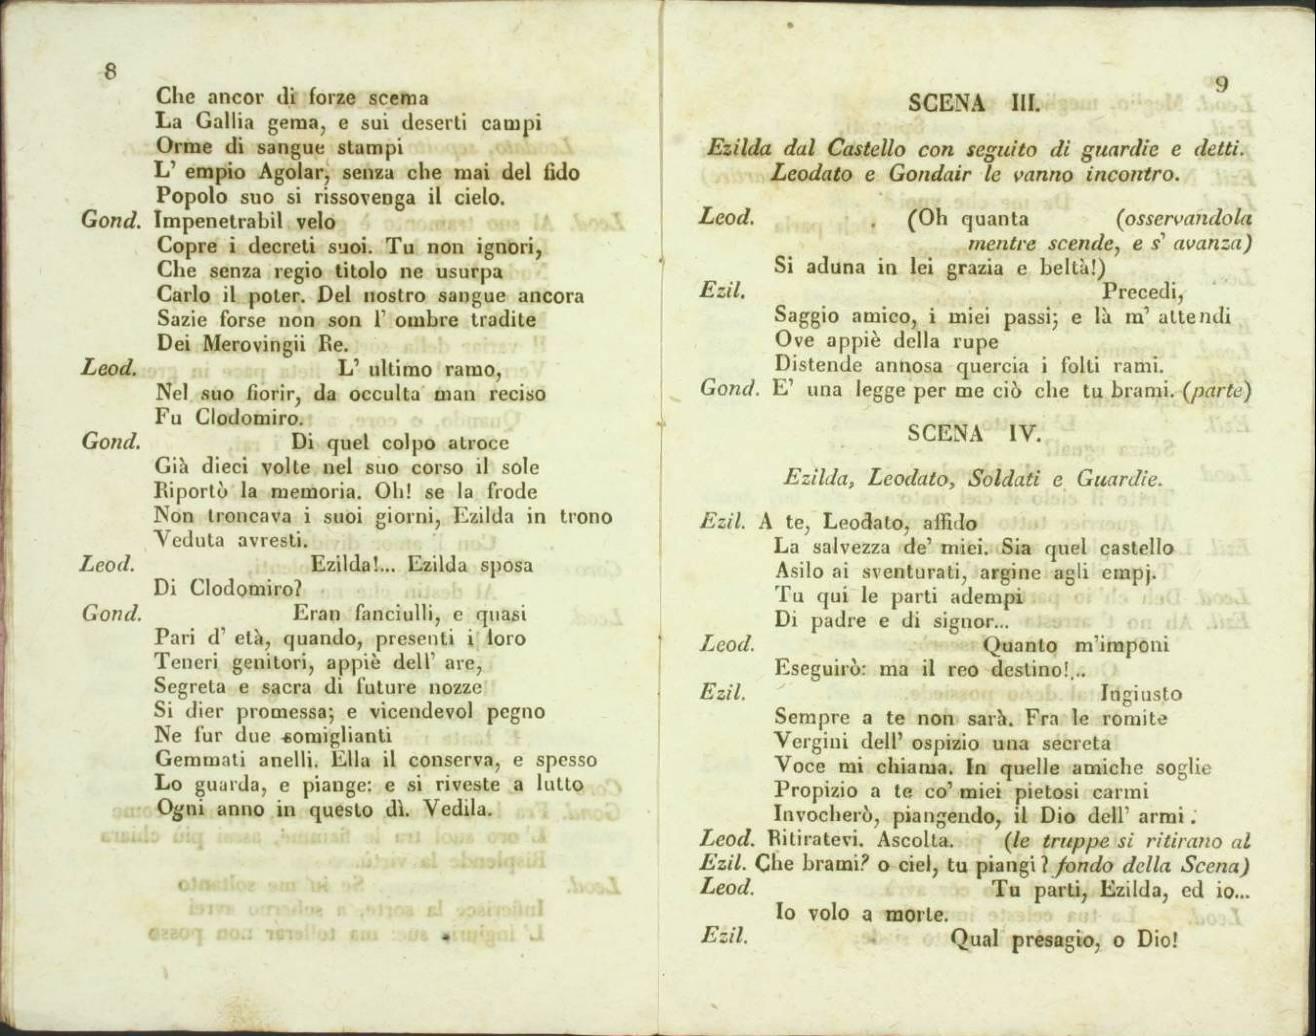 8
Che ancor di forze scema
La Gallia gema, e sui deserti campi
Orme di sangue stampi
L' empio Agolar, senza che mai del fido
Popolo suo si rissovenga il cielo.
Gond. Impenetrabil velo
Copre i decreti suoi. Tu non ignori,
Che senza regio titolo ne usurpa
Carlo il poter. Del nostro sangue ancora
Sazie forse non son l' ombre tradite
Dei Merovingii Re.
Leod. L' ultimo ramo,
Nel suo fiorir, da occulta man reciso
Fu Clodomiro.
Gond. Di quel colpo atroce
Già dieci volte nel suo corso il sole
Riportò la memoria. Oh! se la frode
Non troncava i suoi giorni, Ezilda in trono
Veduta avresti.
Leod. Ezilda!... Ezilda sposa
Di Clodomiro?
Gond. Eran fanciulli, e quasi
Pari d' età, quando, presenti i loro
Teneri genitori, appiè dell' are,
Segreta e sacra di future nozze
Si dier promessa; e vicendevol pegno
Ne fur due somiglianti
Gemmati anelli. Ella il conserva, e spesso
Lo guarda, e piange: e si riveste a lutto
Ogni anno in questo dì. Vedila.
9
SCENA III.
Ezilda dal Castello con seguito di guardie e detti.
Leodato e Gondair le vanno incontro.
Leod. (Oh quanta (osservandola
mentre scende, e s' avanza)
Si aduna in lei grazia e beltà!)
Ezil. Precedi,
Saggio amico, i miei passi; e là m' attendi
Ove appiè della rupe
Distende annosa quercia i folti rami.
Gond. E' una legge per me ciò che tu brami. (parte)
SCENA IV.
Ezilda, Leodato, Soldati e Guardie.
Ezil. A te, Leodato, affido
La salvezza de' miei. Sia quel castello
Asilo ai sventurati, argine agli empj.
Tu qui le parti adempi
Di padre e di signor...
Leod. Quanto m'imponi
Eseguirò: ma il reo destino!...
Ezil. Ingiusto
Sempre a te non sarà. Fra le romite
Vergini dell' ospizio una secreta
Voce mi chiama. In quelle amiche soglie
Propizio a te co' miei pietosi carmi
Invocherò, piangendo, il Dio dell' armi.
Leod. Ritiratevi. Ascolta. (le truppe si ritirano al
Ezil. Che brami? o ciel, tu piangi? fondo della Scena)
Leod. Tu parti, Ezilda, ed io...
Io volo a morte.
Ezil. Qual presagio, o Dio!